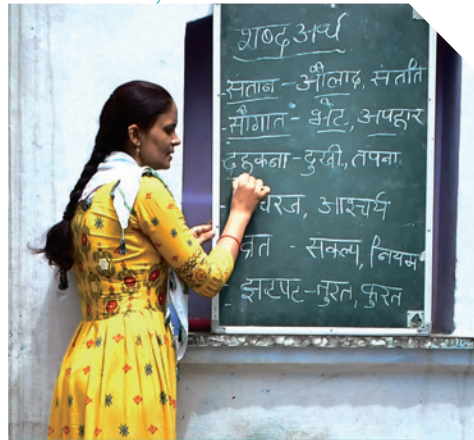 शब्द अर्थ
संतान - औलाद, संतति
सौगात - भेंट, अपहार
दहकना - दुखी, तपना
आश्चर्य
व्रत - सकल्प, नियम
झटपट - तुरत, फुरत